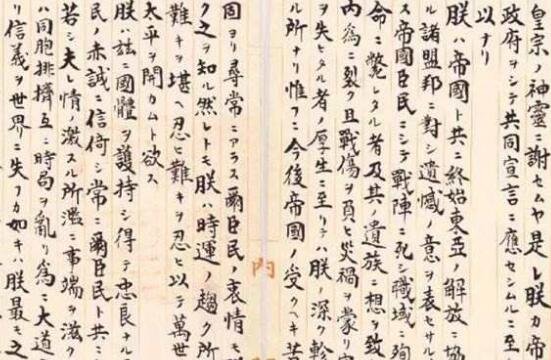 皇宗ノ神靈ニ謝セムヤ是レ朕カ帝
政府ヲシテ共同宣言ニ應セシムルニ至
以ナリ
朕ハ帝國ト共ニ終始東亞ノ解放ニ協
ル諸盟邦ニ對シ遺憾ノ意ヲ表セサ
ス帝國臣民ニシテ戰陣ニ死シ職域ニ殉
命ニ斃レタル者及其ノ遺族ニ想ヲ致
内爲ニ裂ク且戰傷ヲ負ヒ災禍ヲ蒙リ
ヲ失ヒタル者ノ厚生ニ至リテハ朕ノ深ク軫
ル所ナリ惟フニ今後帝國ノ受クヘキ苦
内
固ヨリ尋常ニアラス爾臣民ノ衷情モ
ク之ヲ知ル然レトモ朕ハ時運ノ趨ク所
難キヲ堪ヘ忍ヒ難キヲ忍ヒ以テ萬世
太平ヲ開カムト欲ス
朕ハ茲ニ國體ヲ護持シ得テ忠良ナル
民ノ赤誠ニ信倚シ常ニ爾臣民ト共
若シ夫レ情ノ激スル所濫ニ事端ヲ滋ク
ハ同胞排擠互ニ時局ヲ亂リ爲ニ大道
リ信義ヲ世界ニ失フカ如キハ朕最モ之